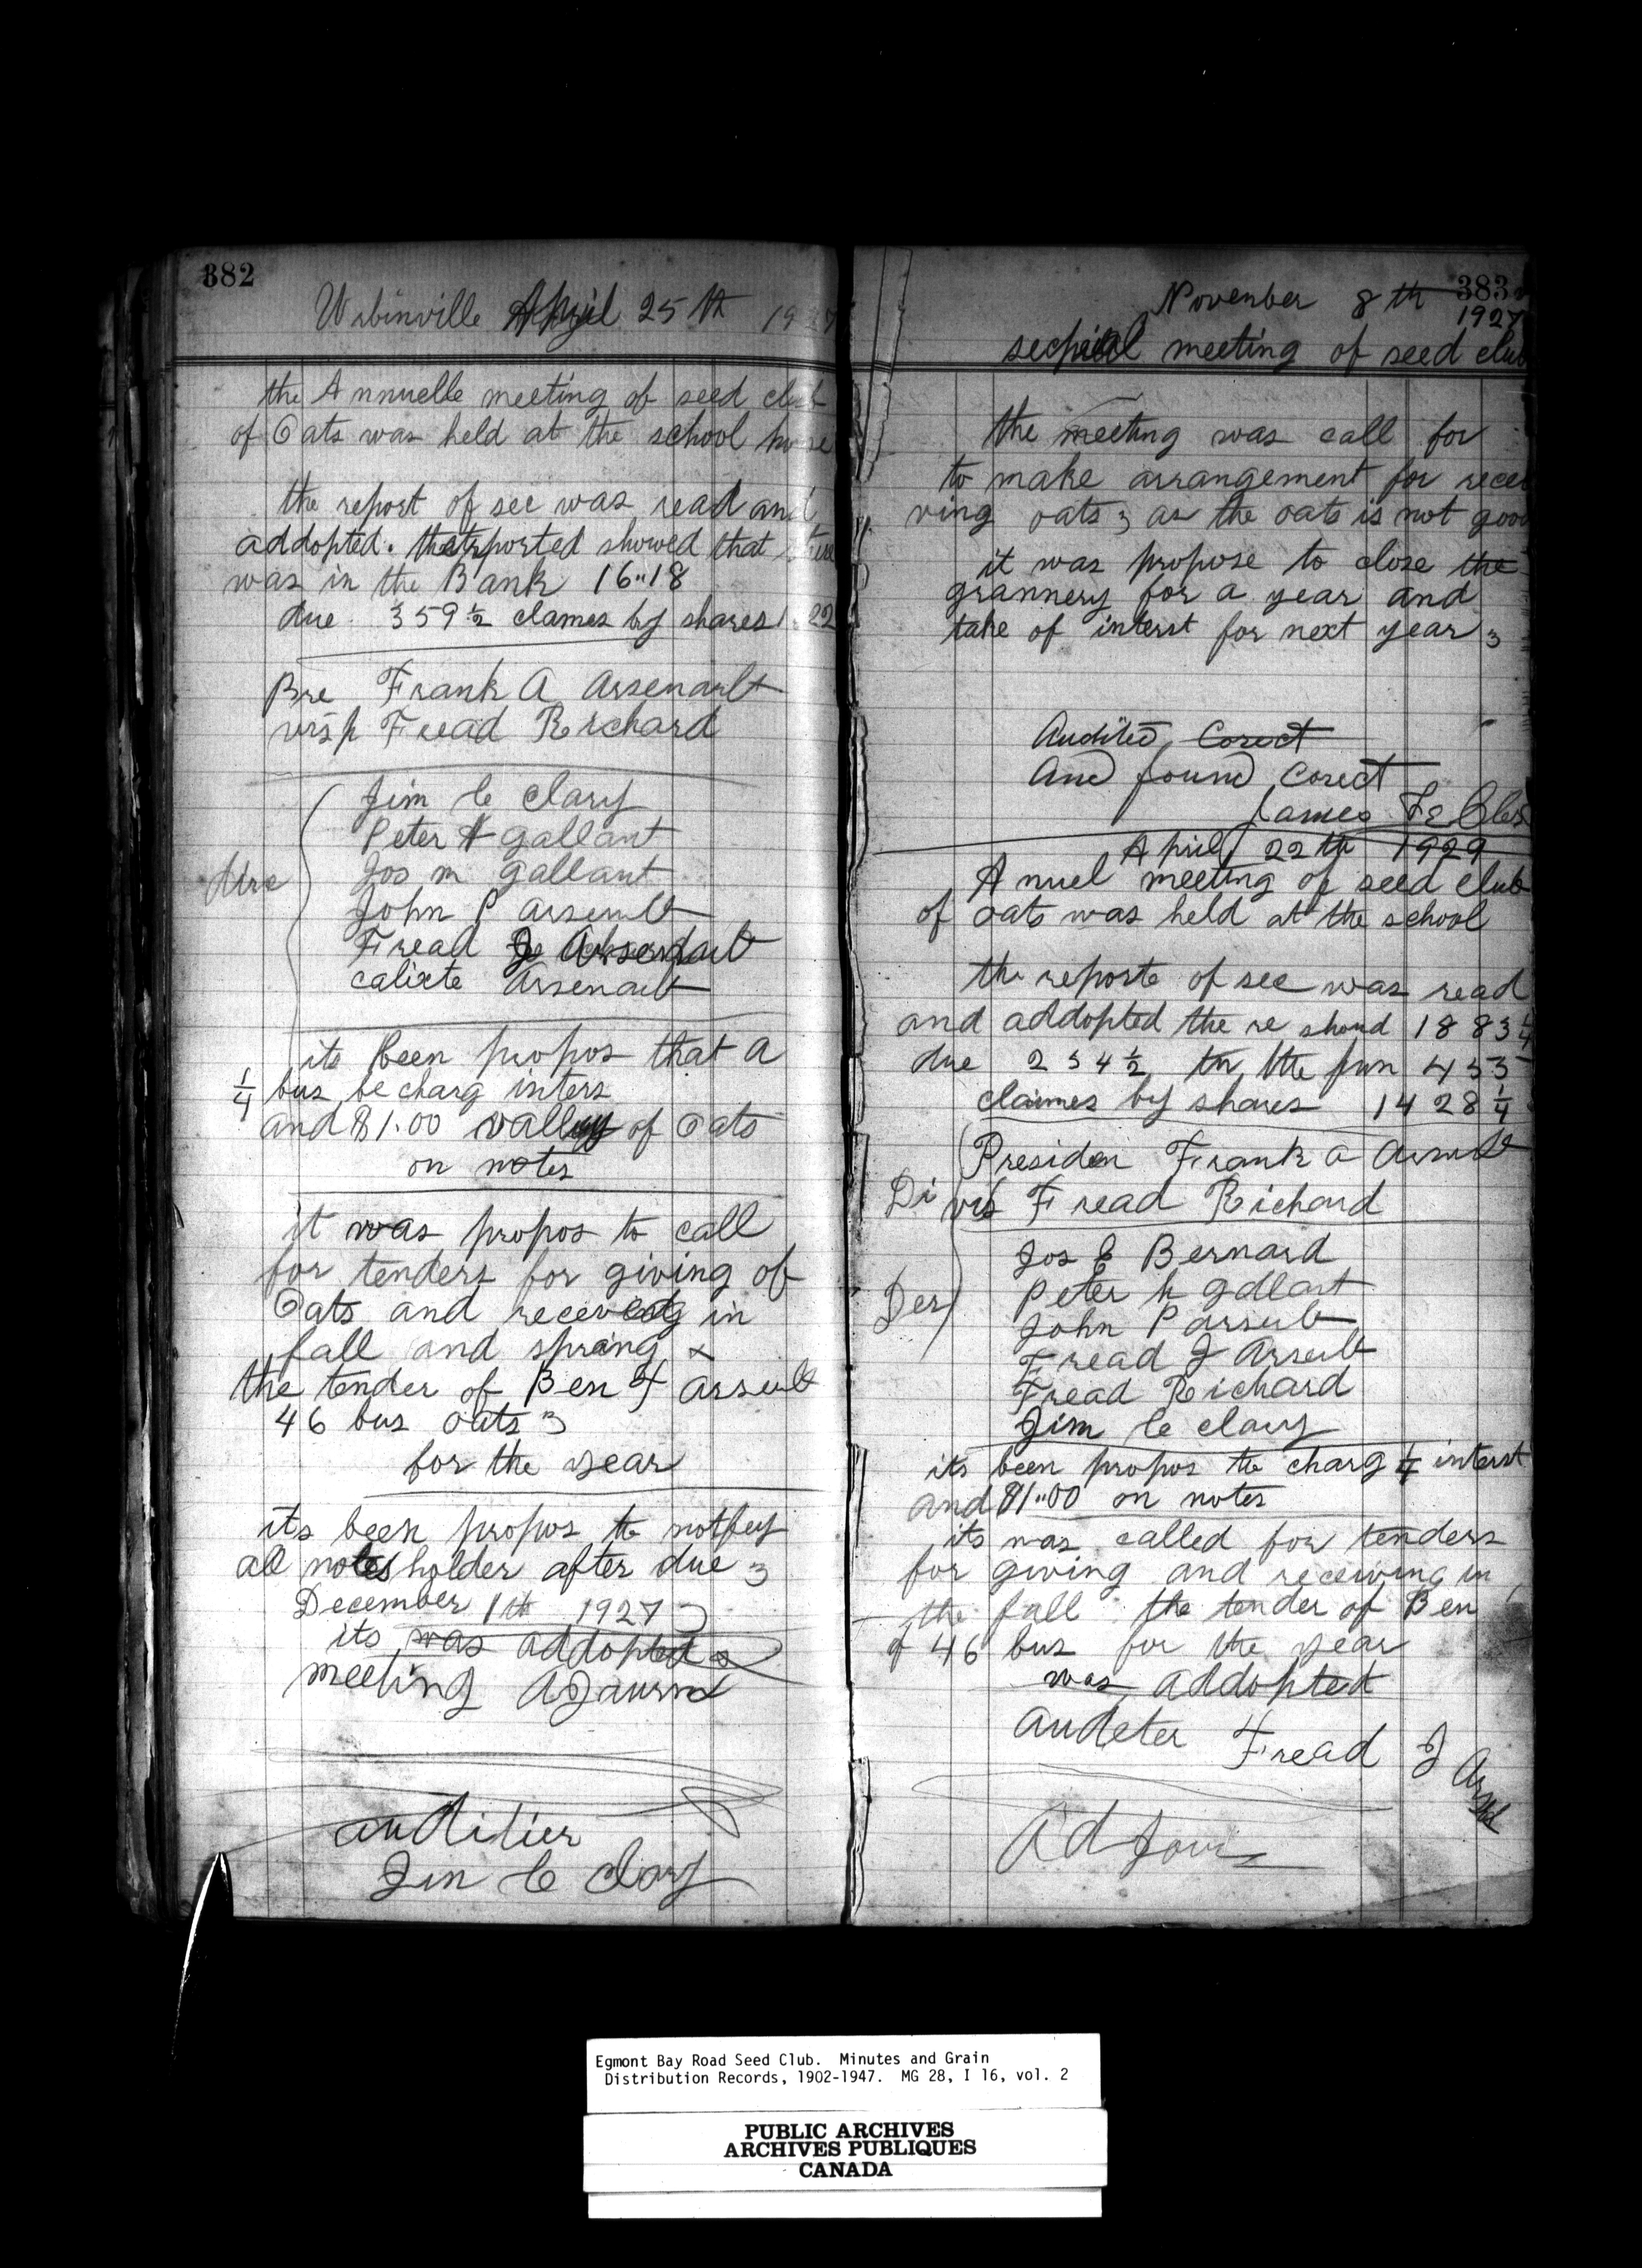 382
Urbinville April 25th 1927
the Annuelle meeting of seed club
of Oats was held at the school house
the report of sec was read and
addopted. the reported showed that there
was in the Bank 16"18
due 359 1/2 clames by shares 1 22
Pre Frank A Arsenault
vis p Fread Richard
Jim Le Clary
Peter H gallant
Jos m gallant
Dire John P arsenult
Fread J Arsenault
calixte Arsenault
its been propos that a
1/4 bus be charg inters
and $1.00 valley of Oats
on notes
it was propos to call
for tenders for giving of
Oats and receveg in
fall and spring
the tender of Ben F arseult
46 bus oats
for the year
its been propos to notfey
all notes holder after due
December 1th 1927
its was addopted
meeting AJaurnd
auditier
Jim Le Clary
383
November 8th
1927
sechpial meeting of seed club
the meeting was call for
to make arrangement for recei
ving oats as the oats is not good
it was propose to close the
grannery for a year and
take of interst for next year
Audited Corect
And found Corect
James
April 22th 1929
Anuel meeting of seed club
of oats was held at the school
the reporte of sec was read
and addopted the re shoud 1883 1/4
due 234 1/2 in the fun 455
claimes by shares 1428 1/4
Presiden Frank a Arsnult
Di vis Fread Richard
Jos E Bernard
Peter h gallant
Der John P arseult
Fread J Arseult
Fread Richard
Jim le clary
its been propos to charg 1/4 interst
and $1"00 on notes
its was called for tenders
for giving and receiving in
the fall the tender of Ben
of 46 bus for the year
was addopted
Audeter Fread J Arsult
Adjour
Egmont Bay Road Seed Club. Minutes and Grain
Distribution Records, 1902-1947. MG 28, I 16, vol. 2
PUBLIC ARCHIVES
ARCHIVES PUBLIQUES
CANADA